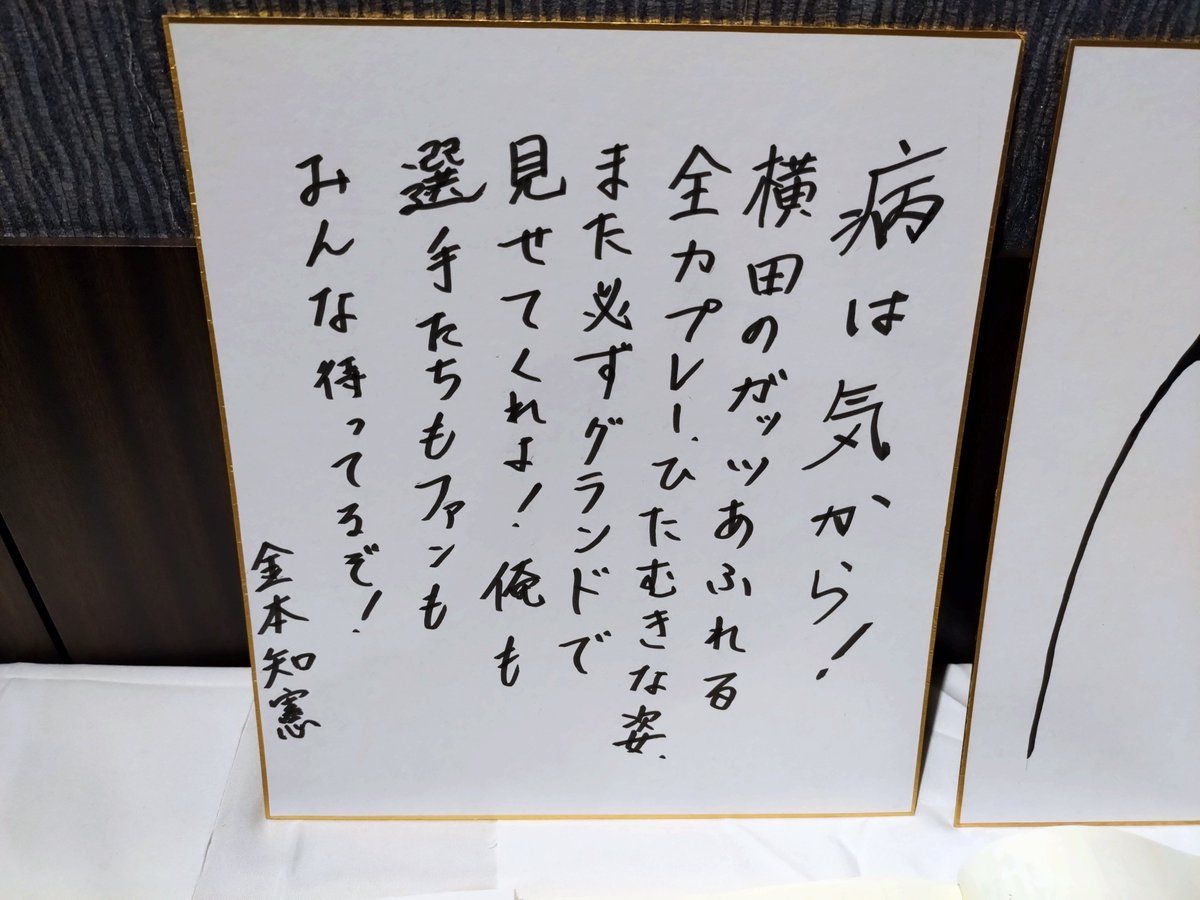 病は気から!
横田のガッツあふれる
全力プレー、ひたむきな姿、
また必ずグランドで
見せてくれよ!俺も
選手たちもファンも
みんな待ってるぞ!
金本知憲